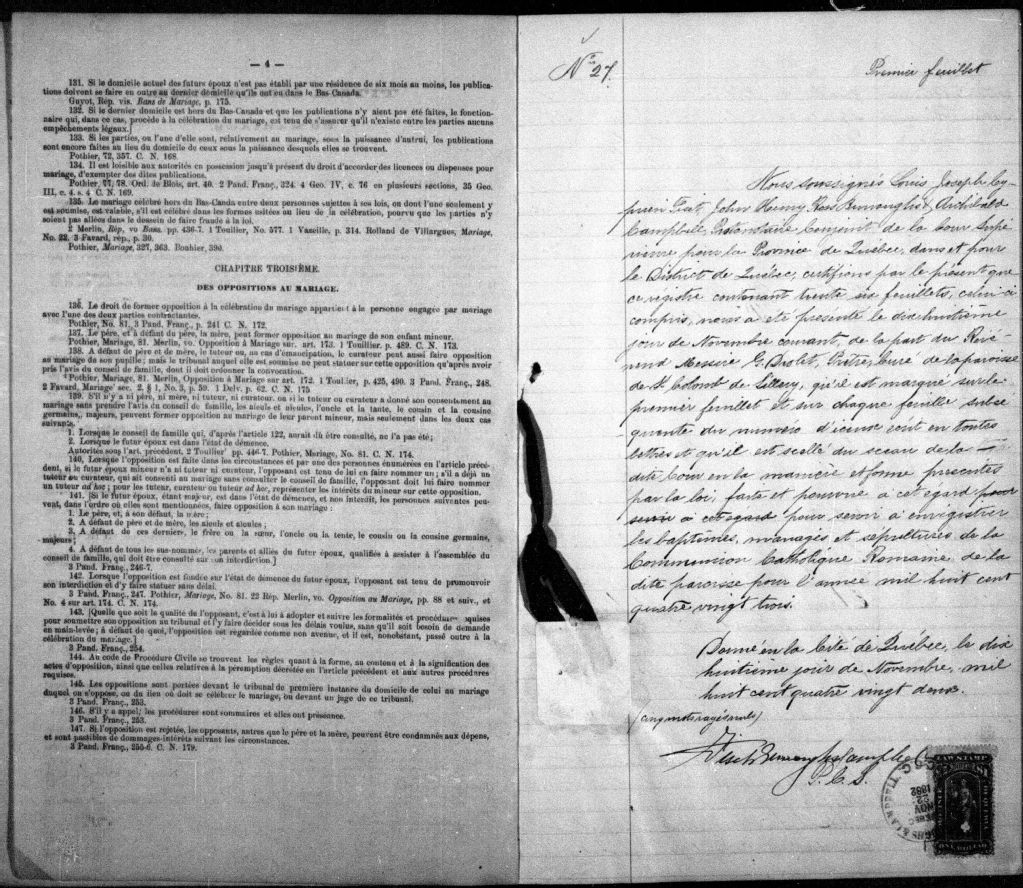 — 4 —
131. Si le domicile actuel des futurs époux n'est pas établi par une résidence de six mois au moins, les publica-
tions doivent se faire en outre au dernier domicile qu'ils ont eu dans le Bas Canada.
Guyot, Rép. vis. Bans de Mariage, p. 175.
132. Si le dernier domicile est hors du Bas-Canada et que les publications n'y aient pas été faites, le fonction-
naire qui, dans ce cas, procède à la célébration du mariage, est tenu de s'assurer qu'il n'existe entre les parties aucuns
empêchements légaux.]
133. Si les parties, ou l'une d'elle sont, relativement au mariage, sous la puissance d'autrui, les publications
sont encore faites au lieu du domicile de ceux sous la puissance desquels elles se trouvent.
Pothier, 72, 357. C. N. 168.
134. Il est loisible aux autorités en possession jusqu'à présent du droit d'accorder des licences ou dispenses pour
mariage, d'exempter des dites publications.
Pothier, 77, 78. Ord. de Blois, art. 40. 2 Pand. Franç., 324. 4 Geo. IV, c. 76 en plusieurs sections, 35 Geo.
III, c. 4. s. 4 C. N. 169.
135. Le mariage célébré hors du Bas-Canda entre deux personnes sujettes à ses lois, ou dont l'une seulement y
est soumise, est valable, s'il est célébré dans les formes usitées au lieu de la célébration, pourvu que les parties n'y
soient pas allées dans le dessein de faire fraude à la loi.
2 Merlin, Rép, vo Bans. pp. 436-7. 1 Toulier, No. 577. 1 Vazeille, p. 314. Rolland de Villargues, Mariage,
No. 22. 3 Favard, rép., p. 30.
Pothier, Mariage, 327, 363. Bouhier, 390.
CHAPITRE TROISIÈME.
DES OPPOSITIONS AU MARIAGE.
136. Le droit de former opposition à la célébration du mariage appartient à la personne engagée par mariage
avec l'une des deux parties contractantes.
Pothier, No. 81. 3 Pand. Franç., p. 241 C. N. 172.
137. Le père, et à défaut du père, la mère, peut former opposition au mariage de son enfant mineur.
Pothier, Mariage, 81. Merlin, vo. Opposition à Mariage sur. art. 173. 1 Touillier, p. 489. C. N. 173.
138. A défaut de père et de mère, le tuteur ou, au cas d'émancipation, le curateur peut aussi faire opposition
au mariage de son pupille; mais le tribunal auquel elle est soumise ne peut statuer sur cette opposition qu'après avoir
pris l'avis du conseil de famille, dont il doit ordonner la convocation.
Pothier, Mariage, 81. Merlin, Opposition à Mariage sur art. 172. 1 Toullier, p. 425, 490. 3 Pand. Franç., 248.
2 Favard, Mariage sec. 2, § 1, No. 3, p. 59. 1 Delv. p. 62. C. N. 175
139. S'il n'y a ni père, ni mère, ni tuteur, ni curateur, ou si le tuteur ou curateur a donné son consentement au
mariage sans prendre l'avis du conseil de famille, les aïeuls et aïeules, l'oncle et la tante, le cousin et la cousine
germains, majeurs, peuvent former opposition au mariage de leur parent mineur, mais seulement dans les deux cas
suivants.
1. Lorsque le conseil de famille qui, d'après l'article 122, aurait dû être consulté, ne l'a pas été;
2. Lorsque le futur époux est dans l'état de démence.
Autorités sous l'art. précédent, 2 Toullier pp. 446-7. Pothier, Mariage, No. 81. C. N. 174.
140. Lorsque l'opposition est faite dans les circonstances et par une des personnes énumérées en l'article précé-
dent, si le futur époux mineur n'a ni tuteur ni curateur, l'opposant est tenu de lui en faire nommer un; s'il a déjà un
tuteur ou curateur, qui ait consenti au mariage sans consulter le conseil de famille, l'opposant doit lui faire nommer
un tuteur ad hoc; pour les tuteur, curateur ou tuteur ad hoc, représenter les intérêts du mineur sur cette opposition.
141. [Si le futur époux, étant majeur, est dans l'état de démence, et non interdit, les personnes suivantes peu-
vent, dans l'ordre où elles sont mentionnées, faire opposition à son mariage:
1. Le père, et, à son défaut, la mère;
2. A défaut de père et de mère, les aïeuls et aïeules;
3. A défaut de ces dernier, le frère ou la sœur, l'oncle ou la tente, le cousin ou la cousine germains,
majeurs;
4. A défaut de tous les sus-nommés, les parents et alliés du futur époux, qualifiés à assister à l'assemblée du
conseil de famille, qui doit être consulté sur son interdiction.]
3 Pand. Franç., 246-7.
142. Lorsque l'opposition est fondée sur l'état de démence du futur époux, l'opposant est tenu de promouvoir
son interdiction et d'y faire statuer sans délai.
3 Pand. Franç., 247. Pothier, Mariage, No. 81. 22 Rép. Merlin, vo. Opposition au Mariage, pp. 88 et suiv., et
No. 4 sur art. 174. C. N. 174.
143. [Quelle que soit la qualité de l'opposant, c'est à lui à adopter et suivre les formalités et procédures requises
pour soumettre son opposition au tribunal et l'y faire décider sous les délais voulus, sans qu'il soit besoin de demande
en main-levée; à défaut de quoi, l'opposition est regardée comme non avenue, et il est, nonobstant, passé outre à la
célébration du mariage.]
3 Pand. Franç., 254.
144. Au code de Procédure Civile se trouvent les règles quant à la forme, au contenu et à la signification des
actes d'opposition, ainsi que celles relatives à la péremption décrétée en l'article précédent et aux autres procédures
requises.
145. Les oppositions sont portées devant le tribunal de première instance du domicile de celui au mariage
duquel on s'oppose, ou du lieu où doit se célébrer le mariage, ou devant un juge de ce tribunal.
3 Pand. Franç., 253.
146. S'il y a appel, les procédures sont sommaires et elles ont présence.
3 Pand. Franç., 253.
147. Si l'opposition est rejetée, les opposants, autres que le père et la mère, peuvent être condamnés aux dépens,
et sont passibles de dommages-intérêts suivant les circonstances.
3 Pand. Franç., 255-6. C. N. 179.
No 27.
Premier feuillet
Nous soussignés Louis Joseph Cy-
prien Fiset, John Henry Ross Burroughs, Archibald
Campbell, Protonotaire Conjoint de la Cour Supé
rieure pour la Province de Québec, dans et pour
le District de Québec, certifions par le présent que
ce registre contenant trente six feuillets, celui-ci
compris, nous a été présenté le dixhuitième
jour de Novembre courant, de la part du Révé
rend Messire G. Drolet, Prêtre, Curé de la paroisse
de St Colomb de Sillery, qu'il est marqué sur le
premier feuillet et sur chaque feuille subsé
quente du numéro d'icelle écrit en toutes
lettres et qu'il est scellé du sceau de la —
dite Cour en la manière et forme prescrites
par la loi; faite et pourvue à cet egard pour
servir à cet egard pour servir à enregistrer
les baptêmes, mariages et sépultures de la
Communion Catholique Romaine de la
dite paroisse pour l'année mil huit cent
quatre vingt trois.
Donné en la Cité de Québec, le dix
huitième jour de Novembre, mil
huit cent quatre vingt deux.
(cinq mots rayés nuls)
Fiset Burroughs Campbell
P. C. S.
LAW STAMP
NOV
1882